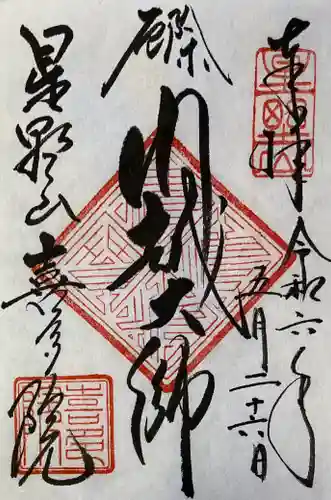 奉拝
令和六年
五月二十六日
厄除
川越大師
星野山
喜多院